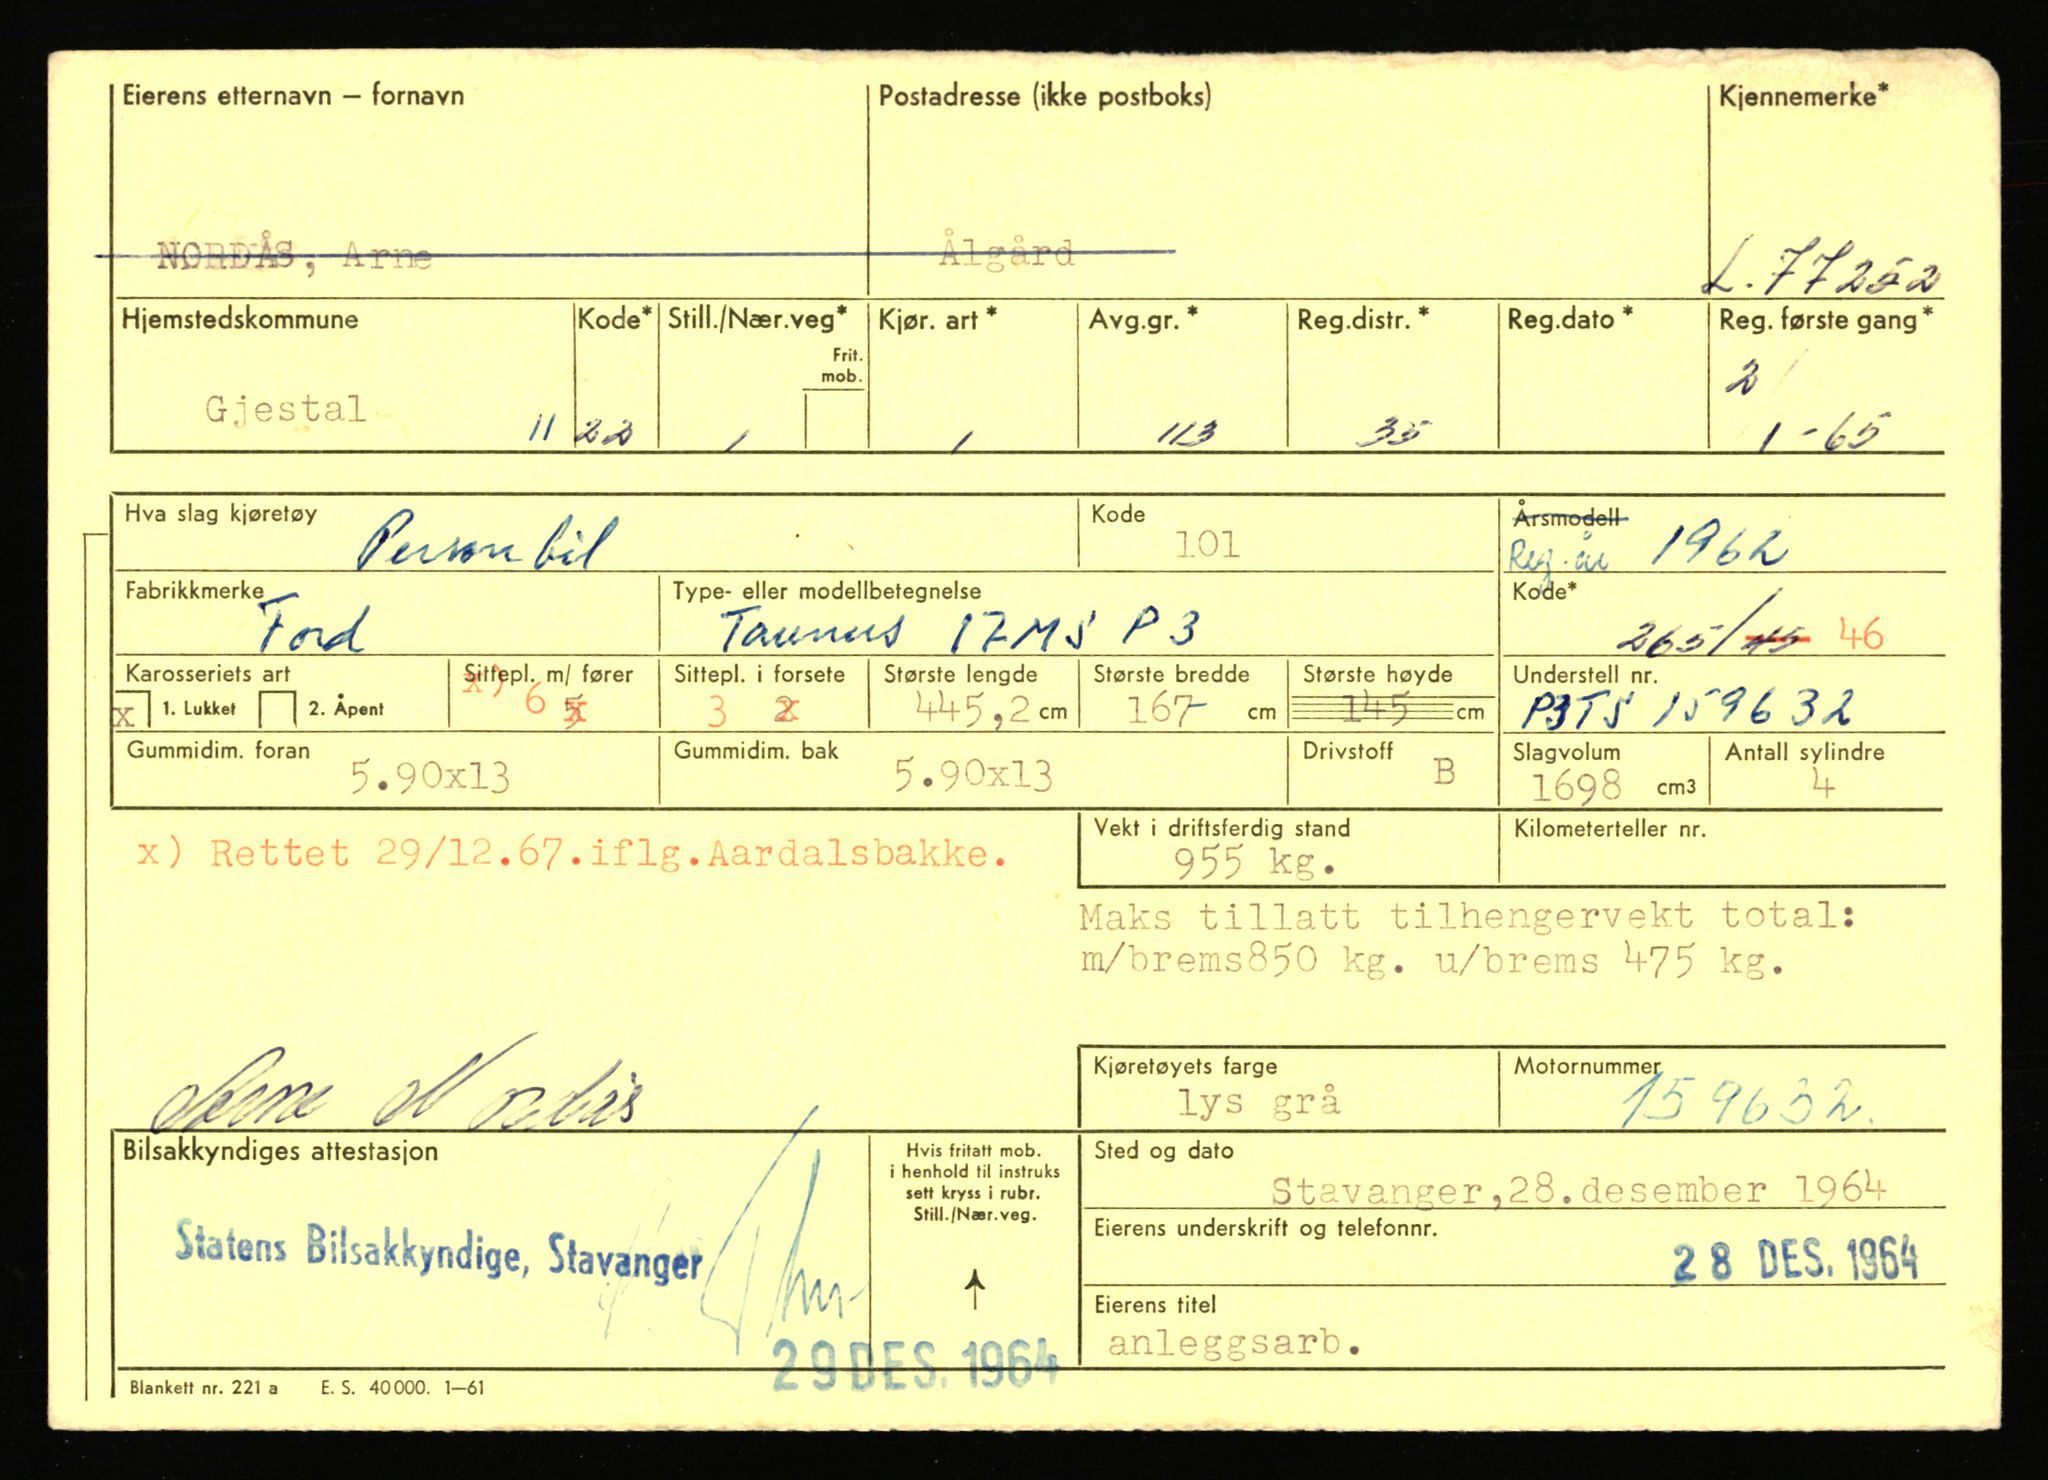 Eierens etternavn – fornavn
Postadresse (ikke postboks)
Kjennemerke*
NORDÅS, Arne
Ålgård
L. 77252
Hjemstedskommune
Kode*
Still./Nær.veg*
Frit. mob.
Kjør. art *
Avg.gr. *
Reg.distr. *
Reg.dato *
Reg. første gang*
2
Gjestal
11 22
1
1
113
35
1-65
Hva slag kjøretøy
Personbil
Kode
101
Årsmodell
Reg. år 1962
Fabrikkmerke
Ford
Type- eller modellbetegnelse
Taunus 17MS P3
Kode*
265/45 46
Karosseriets art
x 1. Lukket 2. Åpent
Sittepl. m/ fører
x) 6 5
Sittepl. i forsete
3 2
Største lengde
445,2 cm
Største bredde
167 cm
Største høyde
145 cm
Understell nr.
P3TS 159632
Gummidim. foran
5.90x13
Gummidim. bak
5.90x13
Drivstoff
B
Slagvolum
1698 cm3
Antall sylindre
4
x) Rettet 29/12.67.iflg.Aardalsbakke.
Vekt i driftsferdig stand
955 kg.
Kilometerteller nr.
Maks tillatt tilhengervekt total:
m/brems850 kg. u/brems 475 kg.
Arne Nordås
Kjøretøyets farge
lys grå
Motornummer
159632.
Bilsakkyndiges attestasjon
Statens Bilsakkyndige, Stavanger
29 DES. 1964
Hvis fritatt mob.
i henhold til instruks
sett kryss i rubr.
Still./Nær.veg.
Sted og dato
Stavanger,28.desember 1964
Eierens underskrift og telefonnr.
28 DES. 1964
Eierens titel
anleggsarb.
Blankett nr. 221 a E. S. 40 000. 1–61